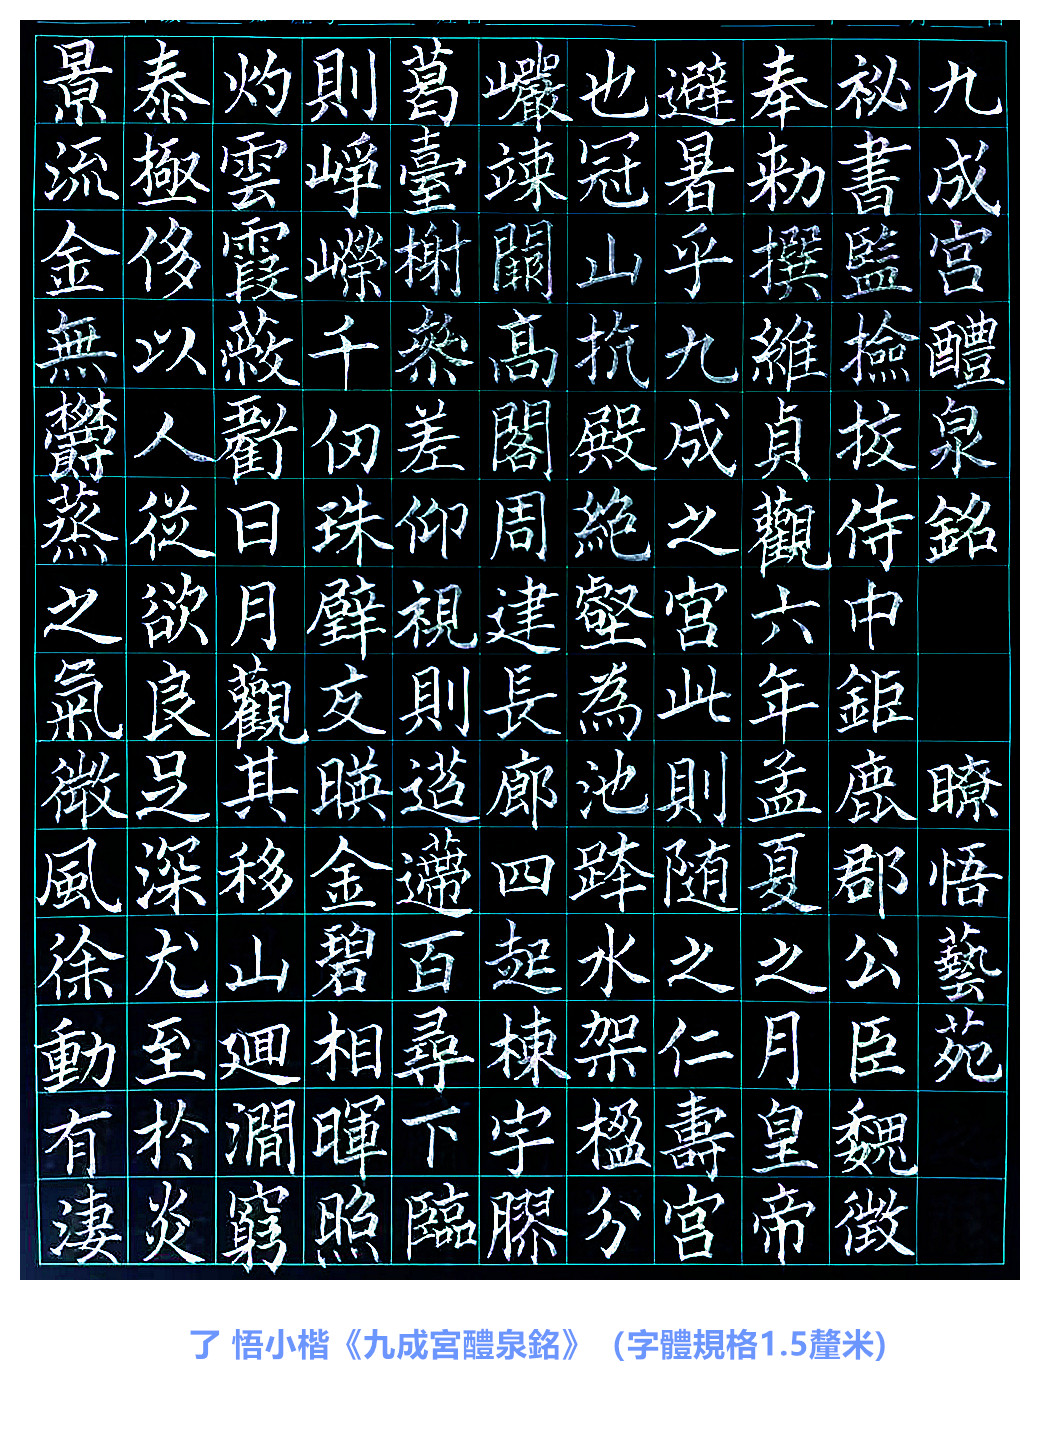 九成宮醴泉銘 瞭悟藝苑
祕書監撿挍侍中鉅鹿郡公臣魏徵
奉勅撰維貞觀六年孟夏之月皇帝
避暑乎九成之宮此則随之仁壽宮
也冠山抗殿絕壑為池跨水架楹分
巖竦闕高閣周建長廊四起棟宇膠
葛臺榭參差仰視則迢遰百尋下臨
則崢嶸千仞珠璧交暎金碧相暉照
灼雲霞蔽虧日月觀其移山廻澗窮
泰極侈以人從欲良足深尤至於炎
景流金無鬱蒸之氣微風徐動有淒
了 悟小楷《九成宮醴泉銘》 (字體規格1.5釐米)